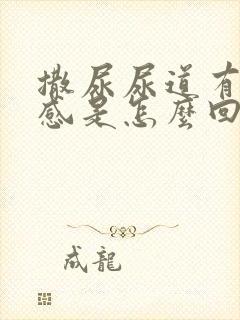 撒尿尿道有
感是怎麼回
成龍